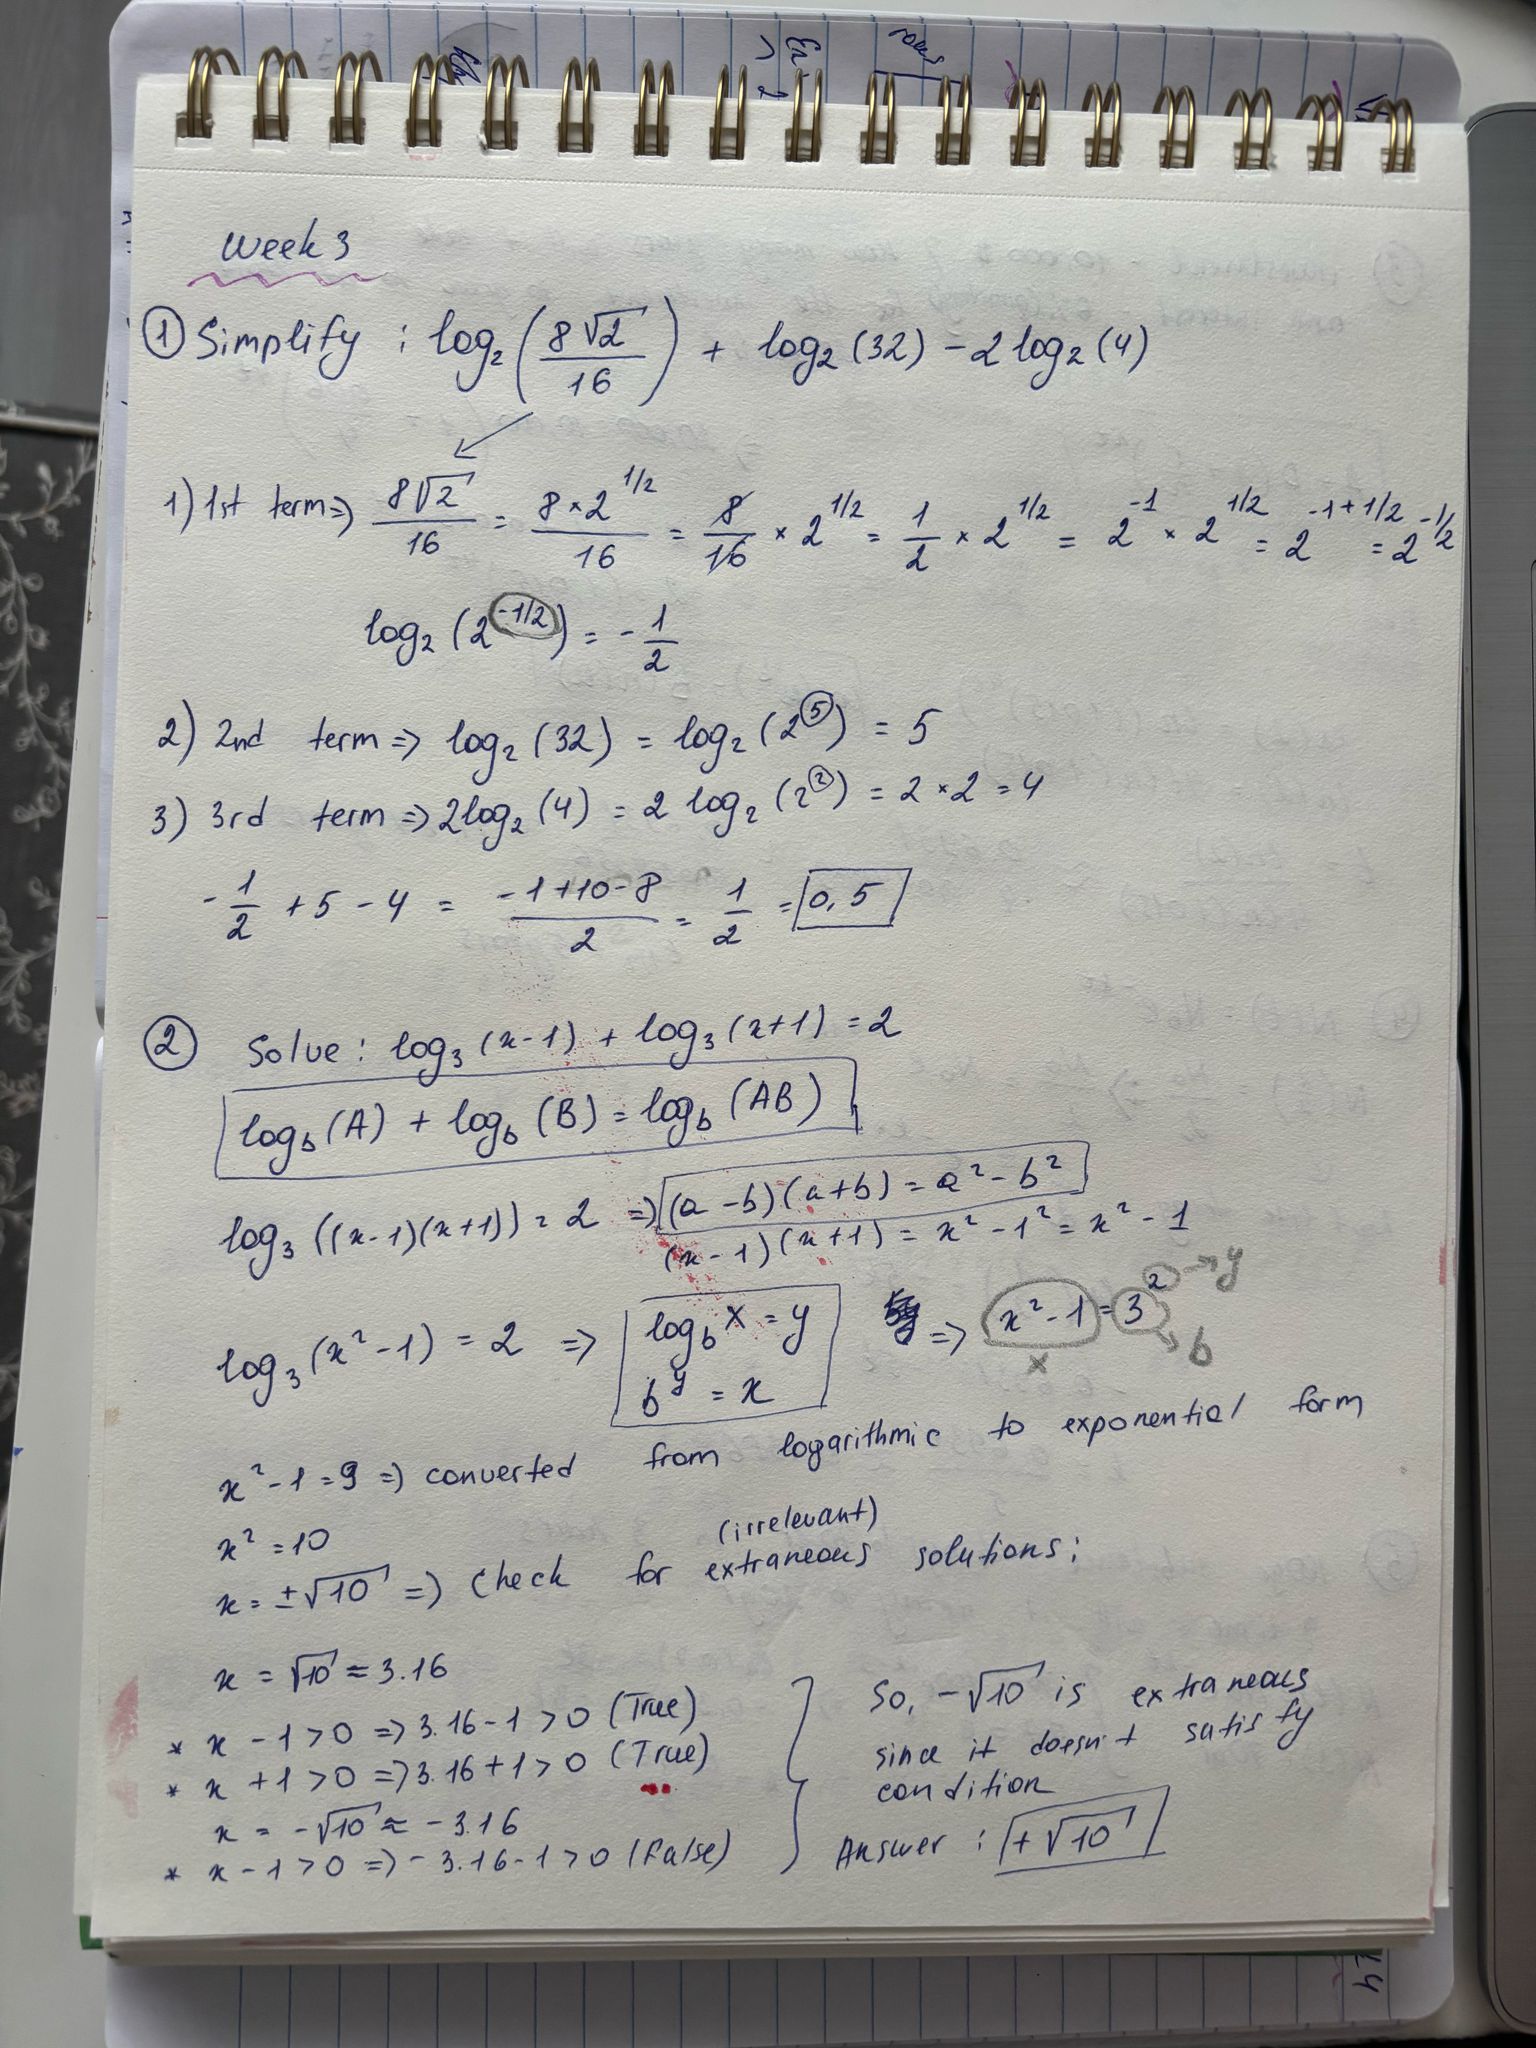 Week 3
① Simplify : log₂(8√2/16) + log₂(32) - 2log₂(4)
1) 1st term => 8√2/16 = 8×2^1/2/16 = 8/16 × 2^1/2 = 1/2 × 2^1/2 = 2^-1 × 2^1/2 = 2^-1+1/2 = 2^-1/2
log₂(2^-1/2) = -1/2
2) 2nd term => log₂(32) = log₂(2^5) = 5
3) 3rd term => 2log₂(4) = 2 log₂(2^2) = 2×2 = 4
-1/2 + 5 - 4 = -1+10-8/2 = 1/2 = 0,5
② Solve : log₃(x-1) + log₃(x+1) = 2
log_b(A) + log_b(B) = log_b(AB)
log₃((x-1)(x+1)) = 2 => (a-b)(a+b) = a² - b²
(x-1)(x+1) = x² - 1² = x² - 1
log₃(x²-1) = 2 => log_b x = y => x²-1 = 3² → y
b^y = x
x
b
x²-1 = 9 => converted from logarithmic to exponential form
x² = 10
(irrelevant)
x = ±√10 => Check for extraneous solutions:
x = √10 ≈ 3.16
* x - 1 > 0 => 3.16 - 1 > 0 (True)
* x + 1 > 0 => 3.16 + 1 > 0 (True)
x = -√10 ≈ -3.16
* x - 1 > 0 => -3.16 - 1 > 0 (False)
So, -√10 is extraneous
since it doesn't satisfy
condition
Answer : +√10